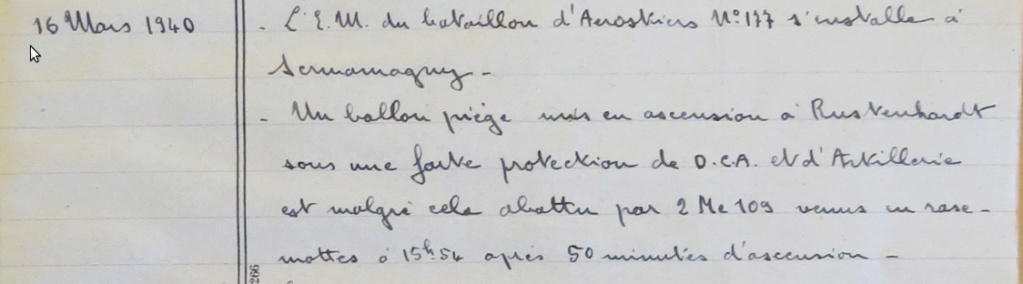 16 Mars 1940 - L'E.M. du bataillon d'Aérostiers N°177 s'installe à
Sermamagny -
- Un ballon piège mis en ascension à Rustenhardt
sous une forte protection de D.C.A. et d'Artillerie
est malgré cela abattu par 2 Me 109 venus en rase-
mottes à 15h54 après 50 minutes d'ascension -
266